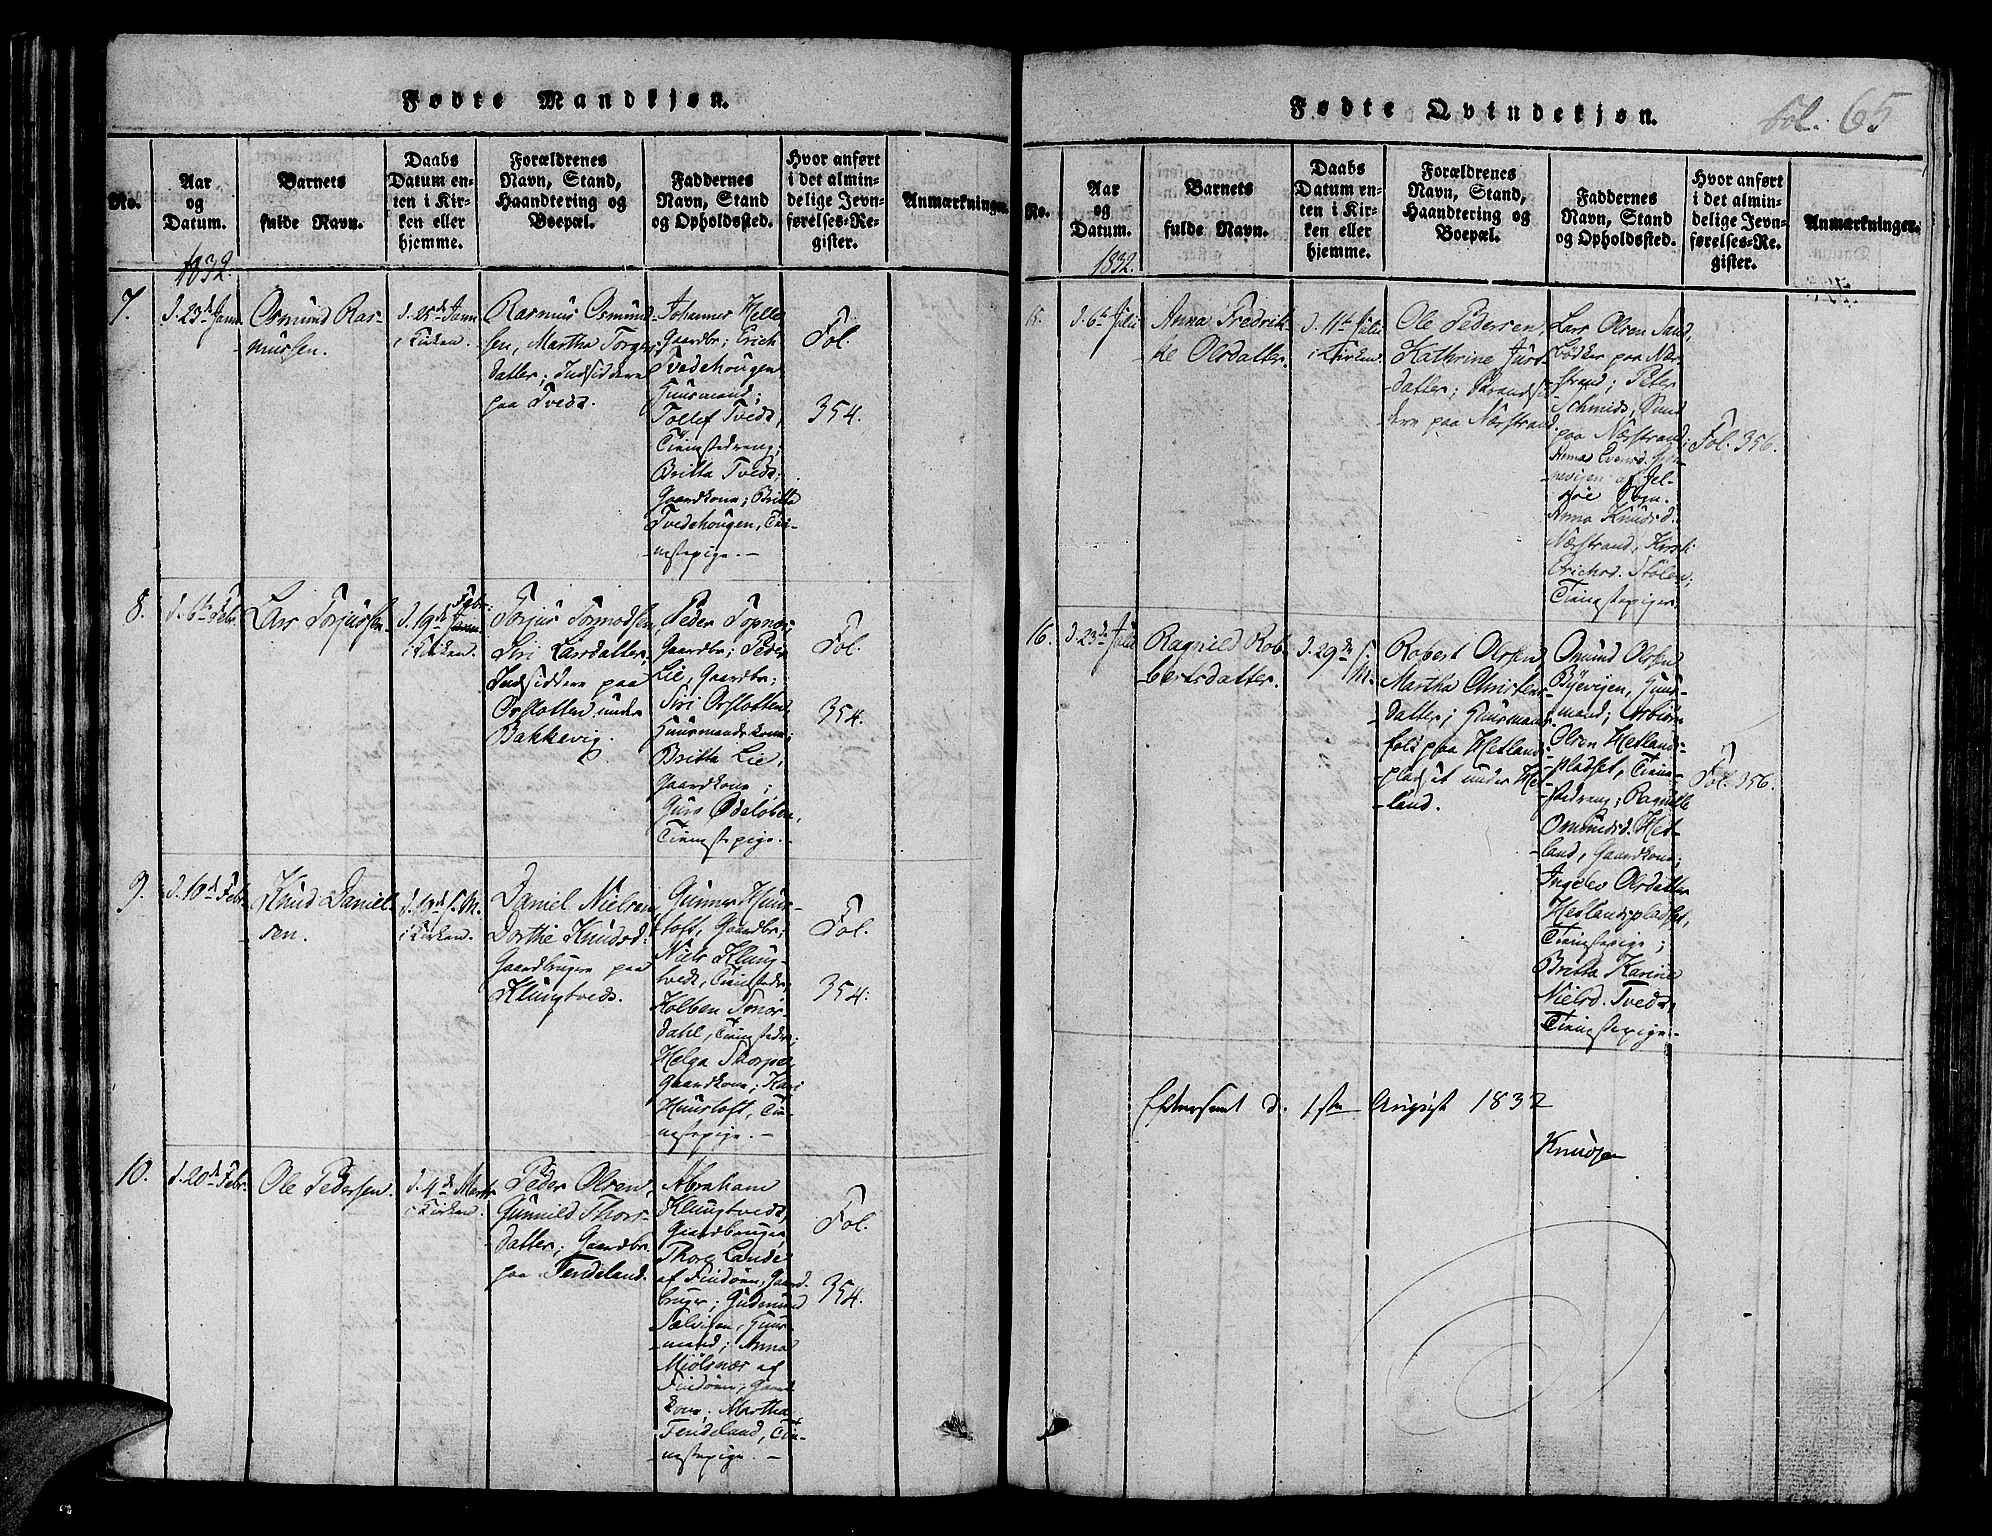 Fødte Mandkjøn.
No.
Aar
og
Datum.
Barnets
fulde Navn.
Daabs
Datum en-
ten i Kir-
ken eller
hjemme.
Forældrenes
Navn, Stand,
Haandtering og
Boepæl.
Faddernes
Navn, Stand
og Opholdsted.
Hvor anført
i det almin-
delige Jevn-
førelses-Re-
gister.
Anmærkninger.
1832.
7.
d. 23de Janr
Osmund Ras-
mussen.
d. 25de Janr
i Kirken.
Rasmus Osmund-
sen, Martha Torges-
datter; Indsiddere
paa Tvedt.
Johannes Helle
Gaardbr; Erich
Tvedehougen
Huusmand;
Tollef Tvedt,
Tienestedreng;
Britta Tvedt,
Gaardkone; Britta
Tvedehougen, Tie-
nestepige.-
Fol.
354.
8.
d. 6te Febr.
Lars Torjussen.
d. 19de Febr:
i Kirken.
Torjus Tormodsen,
Siri Larsdatter,
Indsiddere paa
Orslotten under
Bakkevig.
Peder Topnes,
Gaardbr; Peder
Lie, Gaardbr;
Siri Orslotten,
Huusmandskone;
Britta Lie,
Gaardkone;
Guro Ødeløben,
Tienestepige.-
Fol.
354.
9.
d. 10de Febr.
Knud Daniel-
sen.
d. 19de s. M.
i Kirken.
Daniel Nielsen
Dorthe Knudsd:
Gaardbrugere paa
Klungtvedt.
Gunner Huus-
toft, Gaardbr;
Niels Klung-
tvedt, Tienestedr;
Kolben Tenor-
dahl, Tienestedr;
Helga Thorpe,
Gaardkone; Kari
Huustoft, Tie-
nestepige.-
Fol.
354.
10.
d. 20de Febr.
Ole Pedersen.
d. 4de Marts
i Kirken.
Peder Olsen,
Gunnild Thors-
datter; Gaardbr.
paa Tendeland.
Abraham
Klungtvedt,
Gaardbruger
Thore Lande
af Findøen, Gaard-
bruger; Gudmund
Sælvigen, Huus-
mand; Anna
Miølsnær af
Findøen, Gaard-
kone. Martha
Tendeland, Tie-
nestepige.-
Fol.
354.
Fødte Qvindekjøn.
Fol. 65
No.
Aar
og
Datum.
Barnets
fulde Navn.
Daabs
Datum en-
ten i Kir-
ken eller
hjemme.
Forældrenes
Navn, Stand,
Haandtering og
Boepæl.
Faddernes
Navn, Stand
og Opholdsted.
Hvor anført
i det almin-
delige Jevn-
førelses-Re-
gister.
Anmærkninger.
1832.
15.
d. 6te Julii
Anna Fredrik-
ke Olsdatter.
d. 11te Julii
i Kirken.
Ole Pedersen,
Kathrine Jurs-
datter; Strandsid-
dere paa Nærstrand.
Lars Olsen Sand,
Bødker paa Nær-
strand; Peter
Schmidt, Sund
paa Nærstrand;
Anna
af Jel-
søe Sogn.
Anna Knudsd.
Nærstrand, Kirsti
Erichsd. Stølen;
Tienestepiger.
Fol. 356.
16.
d. 23de Julii
Ragnild Rob-
bertsdatter.
d. 29de s.
M.
Robert Olsen
Martha Christens-
datter; Huusmands-
folk paa Hetlands-
pladset under Het-
land.
Omund Olsen
Byevigen, Huus-
mand; Osbiørn
Olsen Hetlands-
pladset, Tiene-
stedreng; Ragnild
Omundsd. Het-
land, Gaardkone;
Ingelev Olsdatter
Hetlandspladset,
Tienestepige;
Britta Karine
Nielsd. Tvedt,
Tienestepige.-
Fol. 356.
Efterseet d. 1ste August 1832
Knudsen